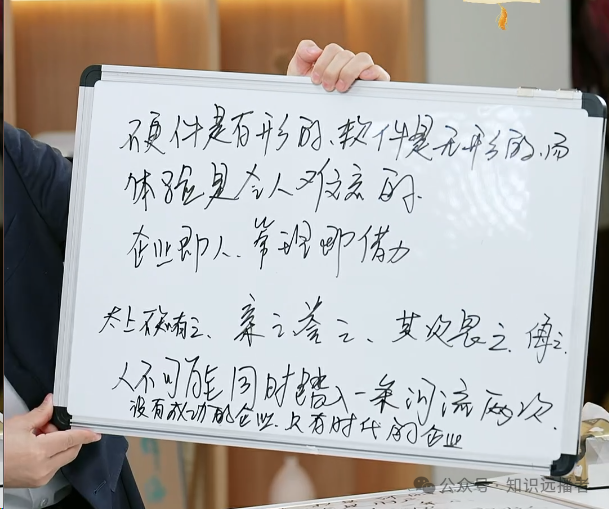 硬件是有形的、软件是无形的、而
体验是令人难忘的.
企业即人、管理即借力
太上不知有之、亲之誉之、其次畏之、侮之.
人不可能同时踏入一条河流两次.
没有成功的企业.只有时代的企业
公众号·知识远播者